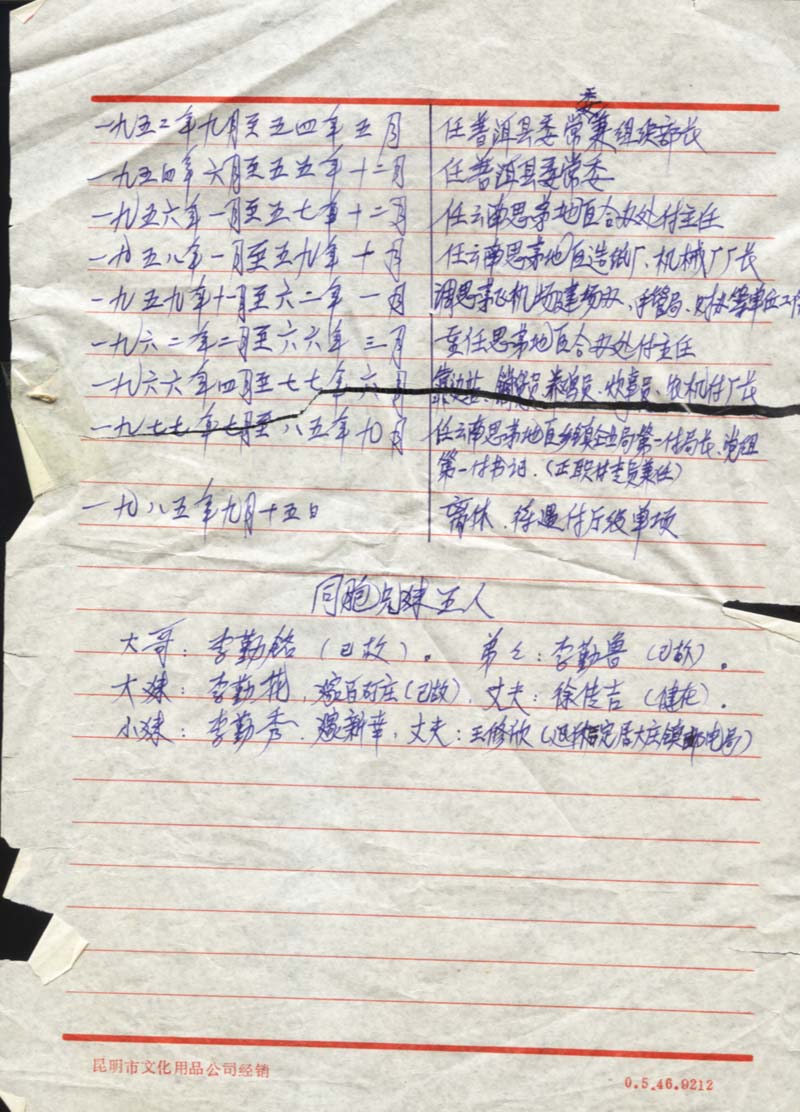 委
一九五二年九月至五四年五月 任普洱县委常兼组织部长
一九五四年六月至五五年十二月 任普洱县委常委
一九五六年一月至五七年十二月 任云南思茅地区合办处付主任
一九五八年一月至五九年十月 任云南思茅地区造纸厂、机械厂厂长
一九五九年十一月至六二年一月 调思茅飞机场建场办、手管局、财办等单位工作
一九六二年二月至六六年三月 重任思茅地区合办处付主任
一九六六年四月至七七年六月 靠边站、销售员、炊事员、农机付厂长
一九七七年七月至八五年九月 任云南思茅地区乡镇企业局第一付局长、党组
第一付书记.(正职由专员兼任)
一九八五年九月十五日 离休.待遇付厅级单项
同胞兄妹五人
大哥:李勤铭(已故)。弟弟:李勤鲁(已故).
大妹:李勤花,嫁百可庄(已故),丈夫:徐传吉(健在).
小妹:李勤秀.嫁新幸,丈夫:王修欣(退休后定居大庄镇邮电局)
昆明市文化用品公司经销
0.5.46.9212